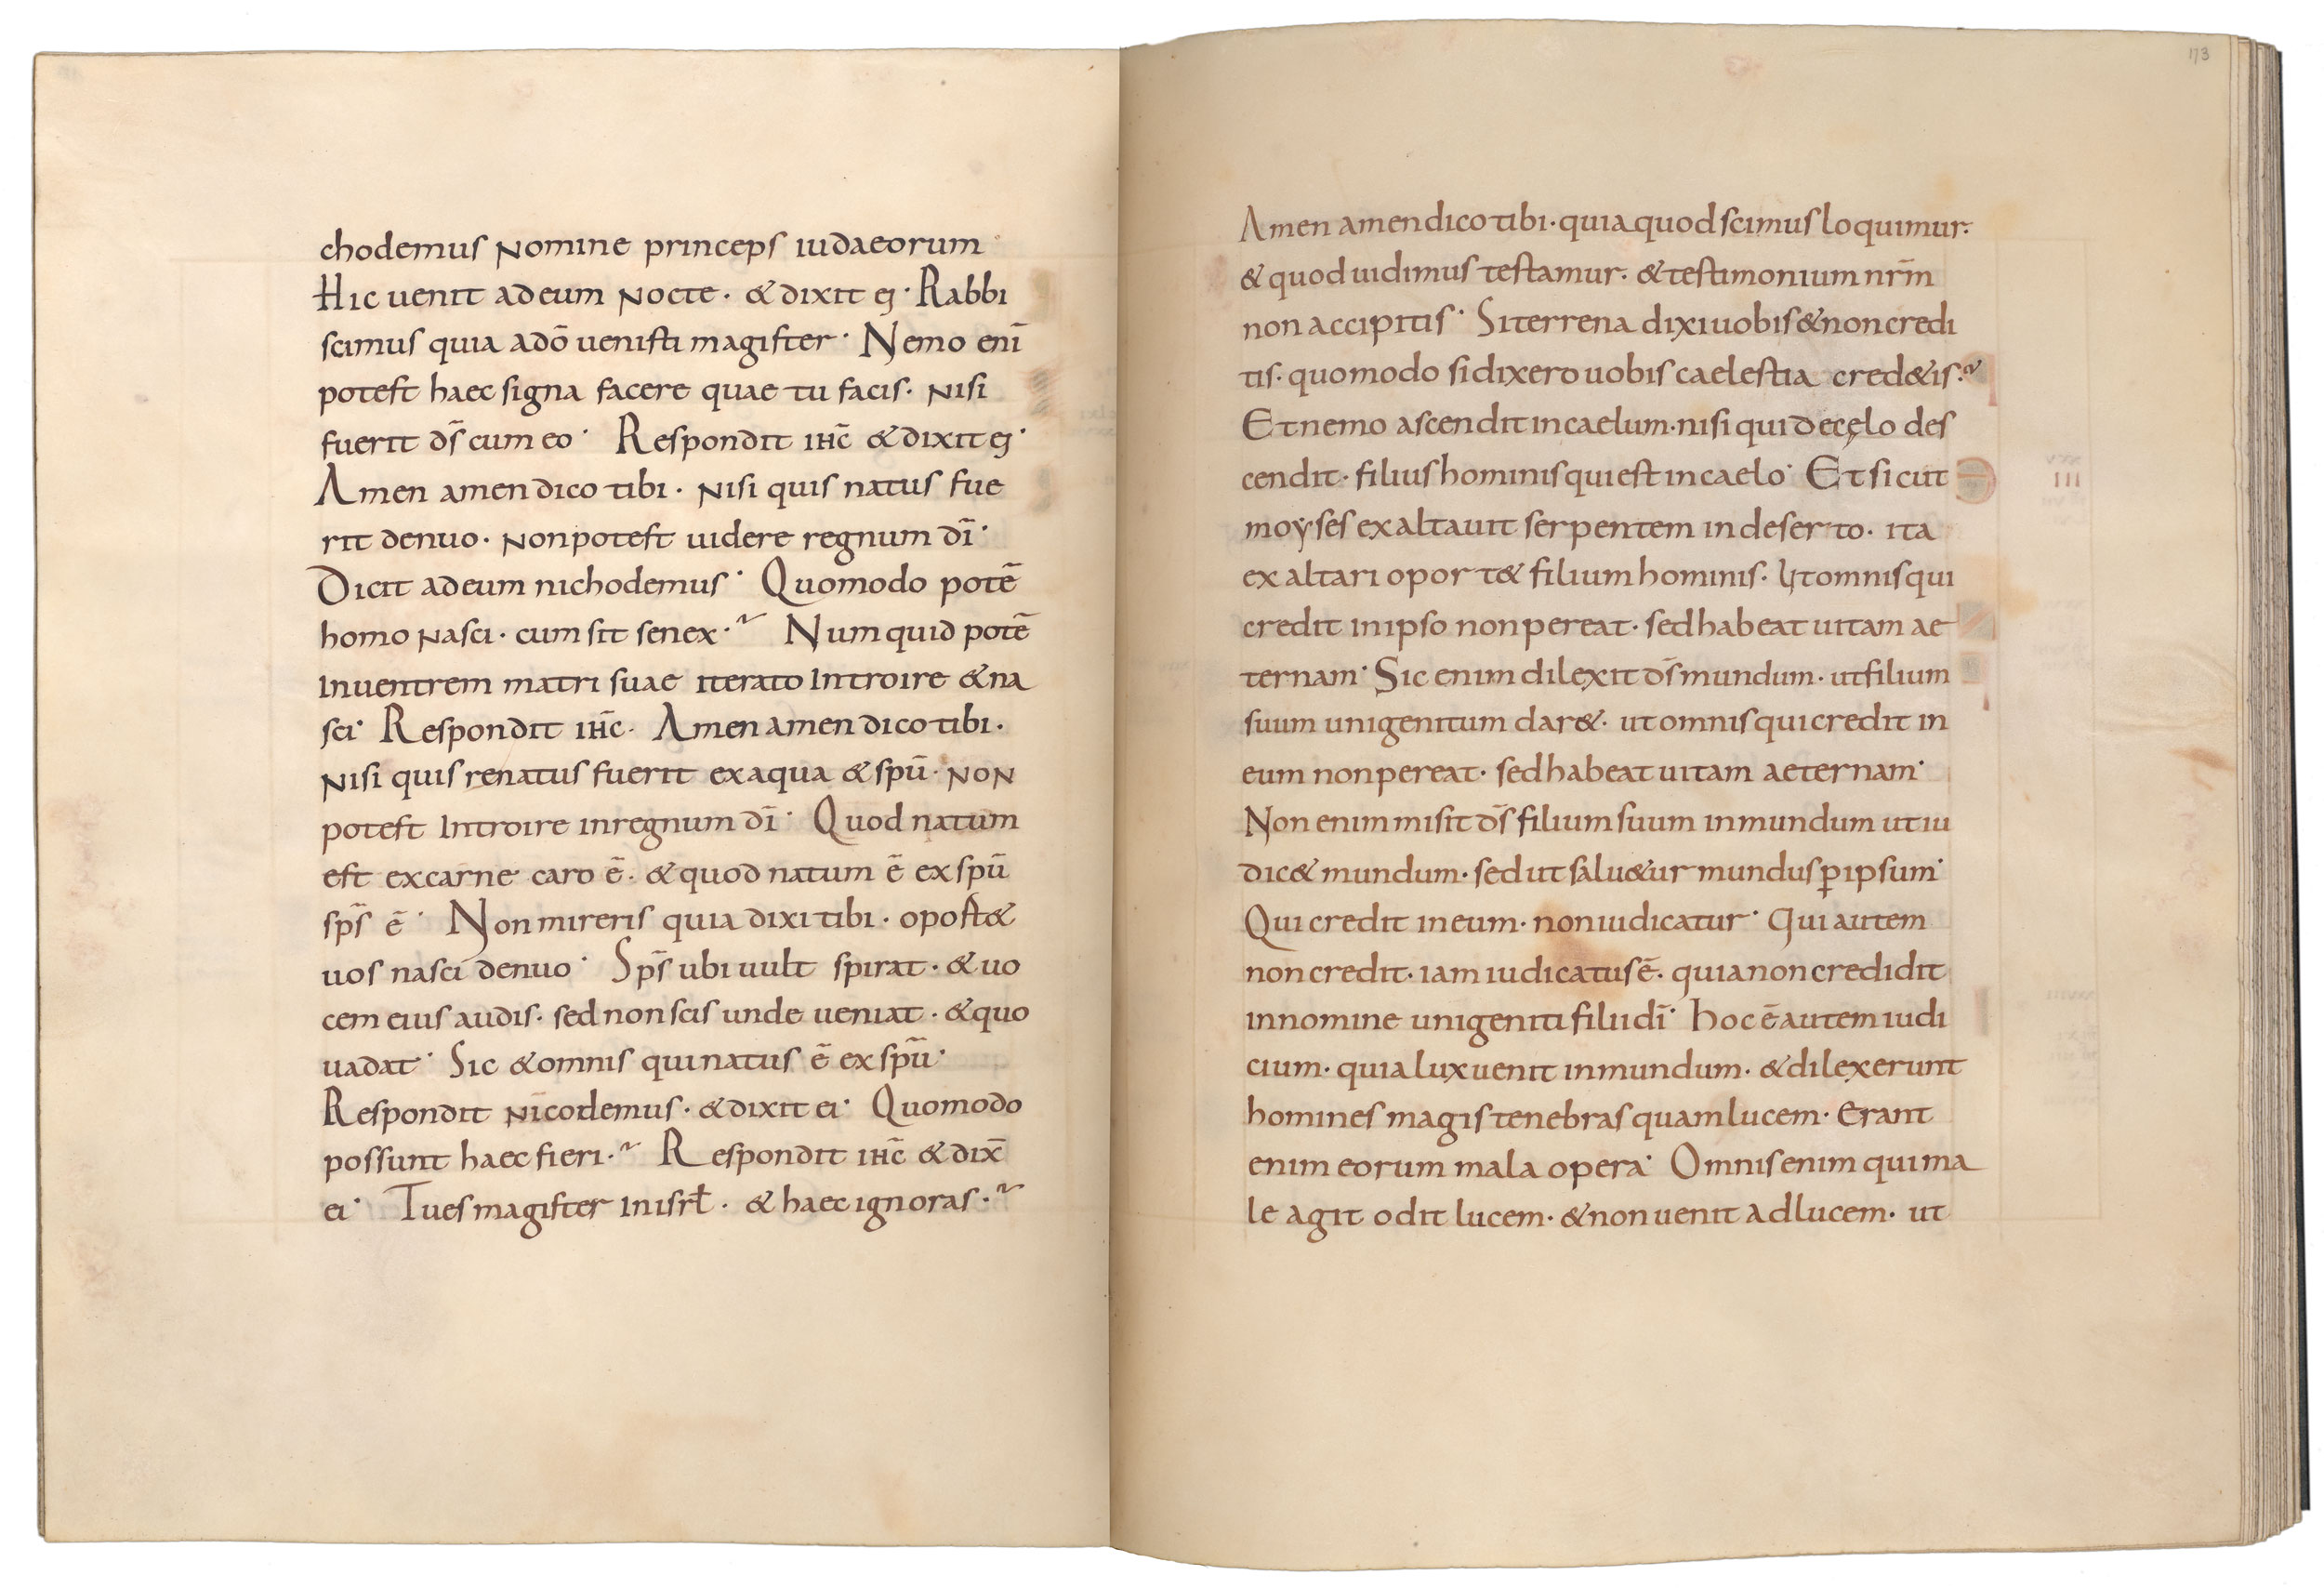 chodemus nomine princeps iudaeorum
Hic uenit adeum nocte · & dixit ei · Rabbi
scimus quia adō uenisti magister · Nemo enī
potest haec signa facere quae tu facis · nisi
fuerit d̄s cum eo · Respondit ih̄c & dixit ei ·
Amen amen dico tibi · nisi quis natus fue
rit denuo · non potest uidere regnum dī ·
Dicit adeum nichodemus · Quomodo potē
homo nasci · cum sit senex ·~ Numquid potē
inuentrem matri suae iterato introire & na
sci · Respondit ih̄c · Amen amen dico tibi ·
nisi quis renatus fuerit exaqua & spū · non
potest introire inregnum dī · Quod natum
est excarne caro ē · & quod natum ē ex spū
sp̄s ē · Non mireris quia dixi tibi · opost&
uos nasci denuo · Sp̄s ubi uult spirat · & uo
cem eius audis · sed non scis unde ueniat · & quo
uadat · Sic & omnis qui natus ē ex spū ·
Respondit nicodemus · & dixit ei · Quomodo
possunt haec fieri ·~ Respondit ih̄c & dix̄
ei · Tu es magister inisrł · & haec ignoras ·~
173
Amen amen dico tibi · quia quod scimus loquimur ·
& quod uidimus testamur · & testimonium nr̄m
non accipitis · Si terrena dixi uobis & non credi
tis · quomodo si dixero uobis caelestia cred&is ·~
Et nemo ascendit in caelum · nisi qui de cęlo des
cendit · filius hominis qui est in caelo · Et sicut
III
moẏses exaltauit serpentem in deserto · ita
exaltari oport& filium hominis · Ut omnis qui
credit in ipso non pereat · sed habeat uitam ae
ternam · Sic enim dilexit d̄s mundum · ut filium
suum unigenitum dar& · ut omnis qui credit in
eum non pereat · sed habeat uitam aeternam ·
Non enim misit d̄s filium suum in mundum ut iu
dic& mundum · sed ut salu&ur mundus ꝑ ipsum ·
Qui credit in eum · non iudicatur · Qui autem
non credit · iam iudicatus ē · quia non credidit
in nomine unigeniti filii dī · hoc ē autem iudi
cium · quia lux uenit in mundum · & dilexerunt
homines magis tenebras quam lucem · Erant
enim eorum mala opera · Omnis enim qui ma
le agit odit lucem · & non uenit ad lucem · ut